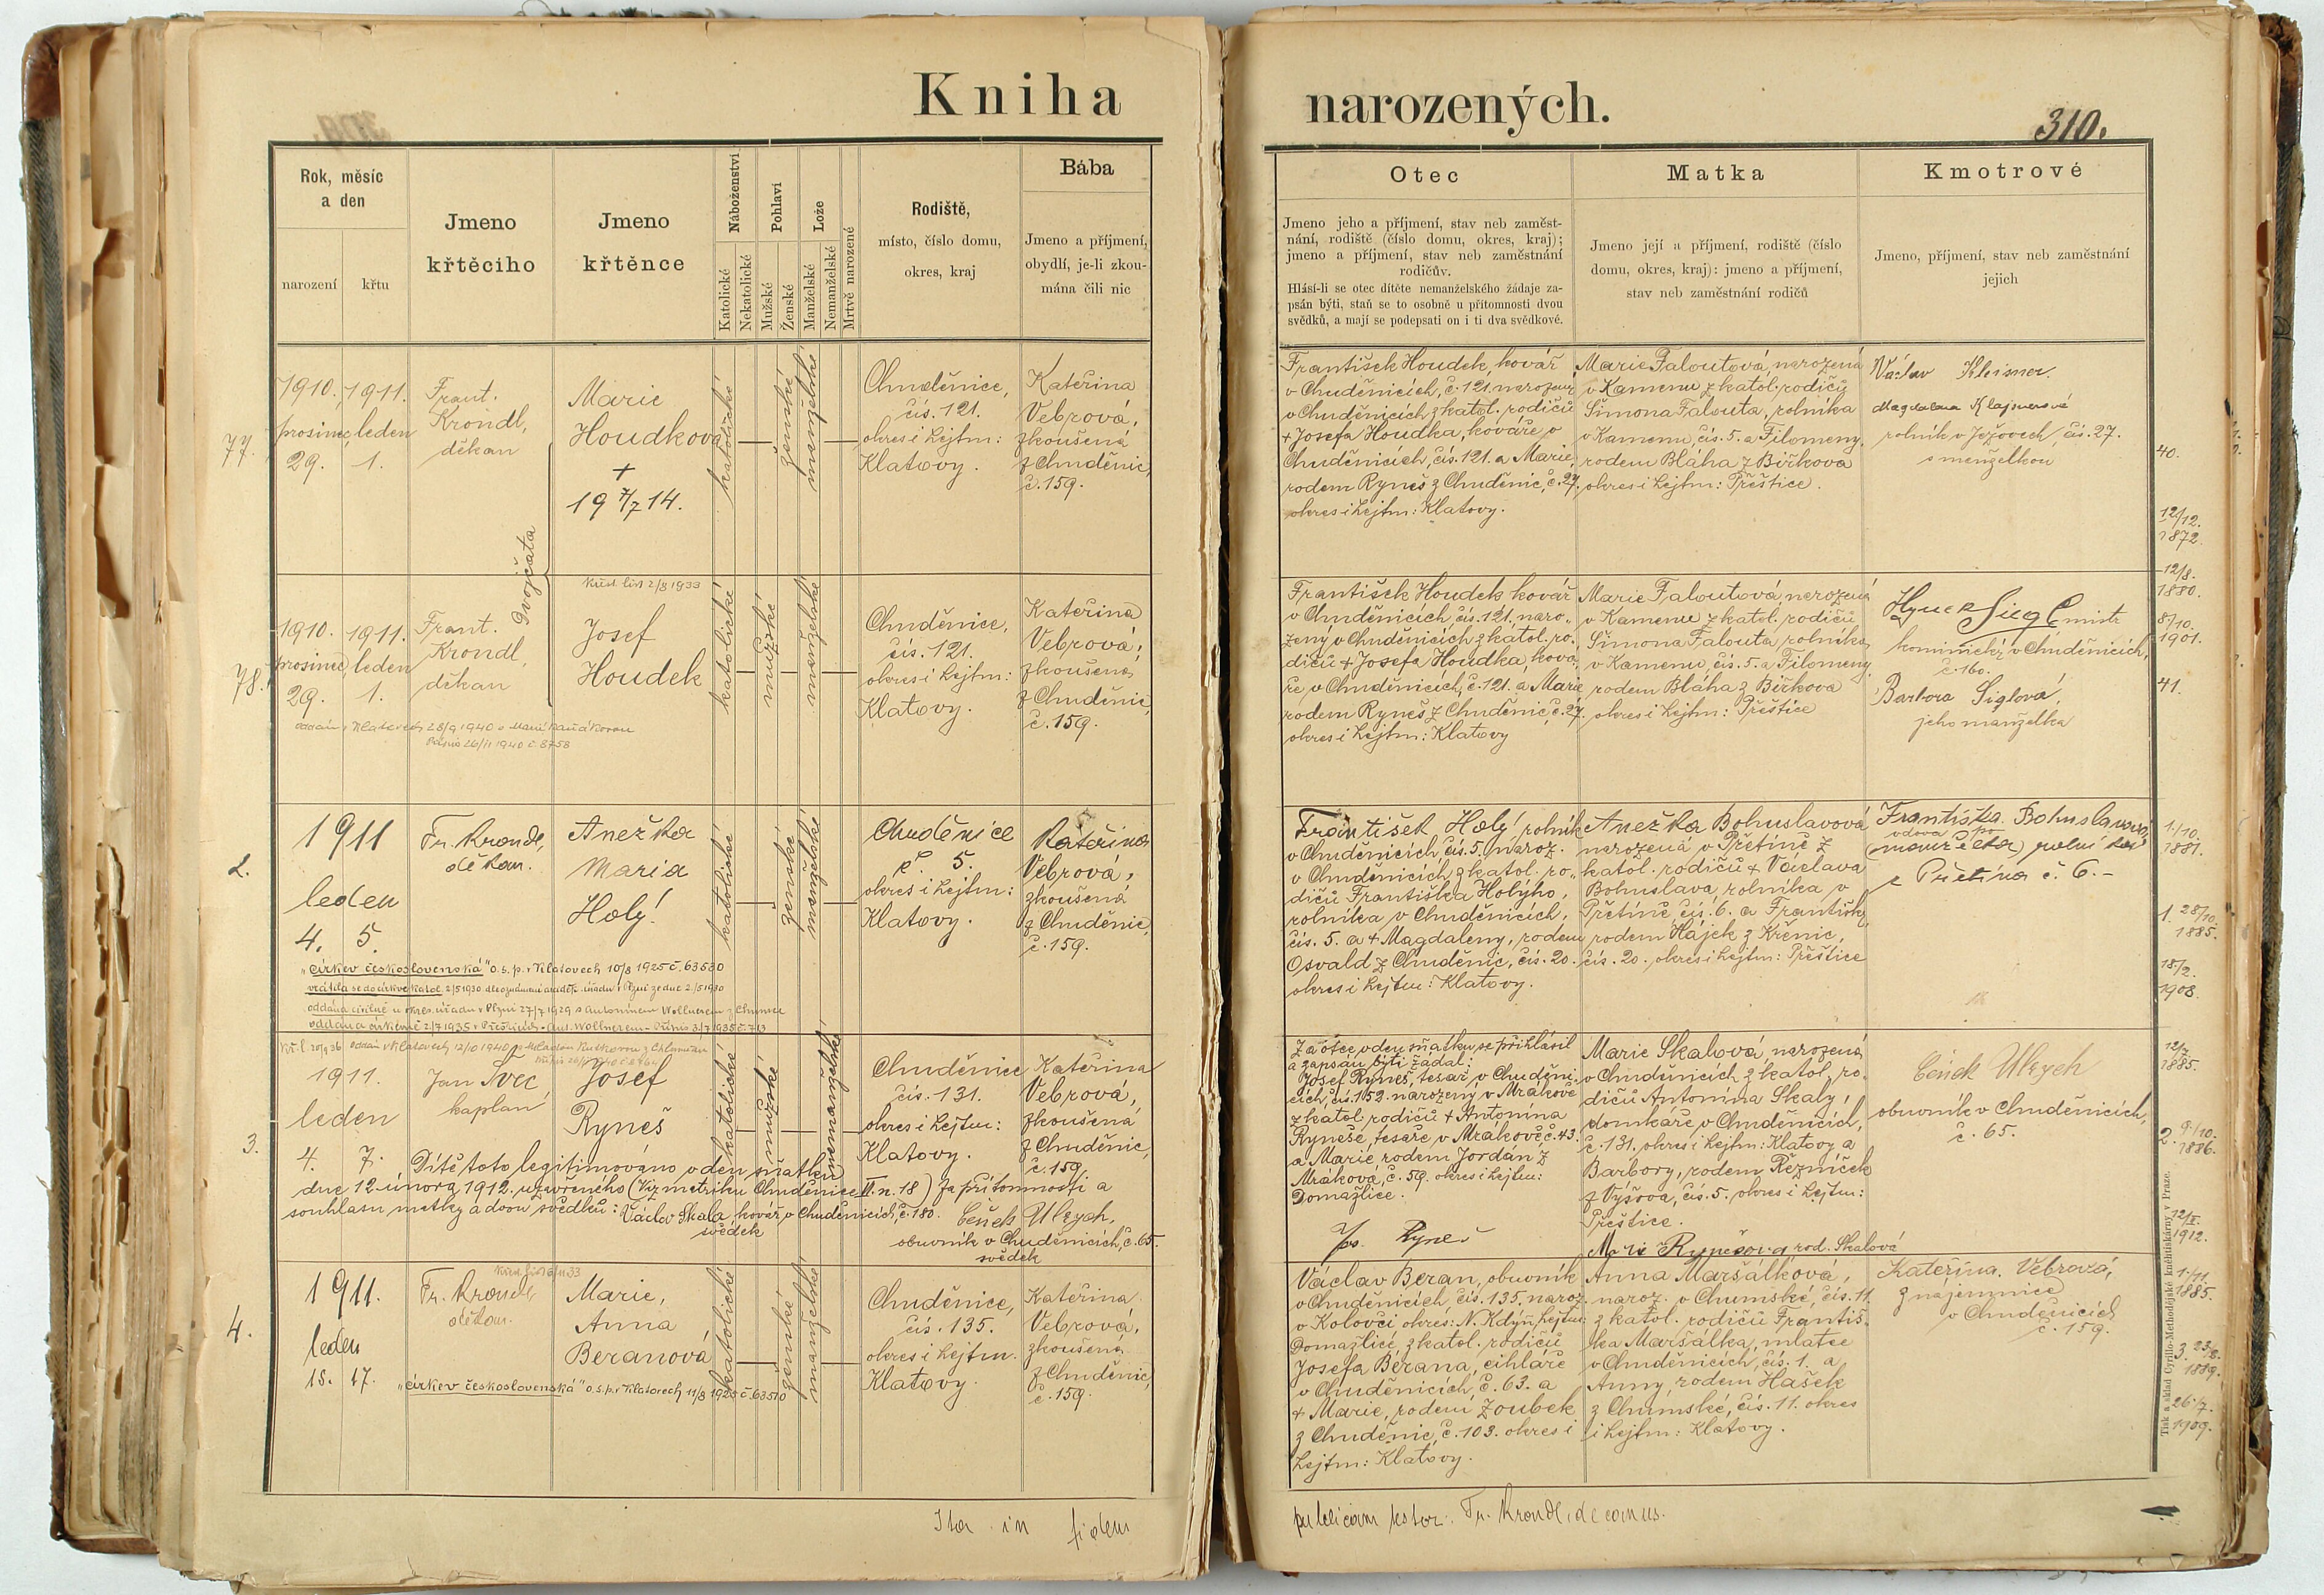 Kniha
narozených.
310.
Rok, měsíc
a den
narození
křtu
Jmeno
křtěciho
Jmeno
křtěnce
Náboženství
Katolické
Nekatolické
Pohlaví
Mužské
Ženské
Lože
Manželské
Nemanželské
Mrtvě narozené
Rodiště,
místo, číslo domu,
okres, kraj
Bába
Jmeno a příjmení,
obydlí, je-li zkou-
mána čili nic
Otec
Jmeno jeho a příjmení, stav neb zaměst-
nání, rodiště (číslo domu, okres, kraj);
jmeno a příjmení, stav neb zaměstnání
rodičův.
Hlásí-li se otec dítěte nemanželského žádaje za-
psán býti, staň se to osobně u přítomnosti dvou
svědků, a mají se podepsati on i ti dva svědkové.
Matka
Jmeno její a příjmení, rodiště (číslo
domu, okres, kraj): jmeno a příjmení,
stav neb zaměstnání rodičů
Kmotrové
Jmeno, příjmení, stav neb zaměstnání
jejich
77.
1910.
prosinec
29.
1911.
leden
1.
Frant.
Krondl,
děkan
Marie
Houdkova
+
19 7/7 14.
dvojčata
katolické
ženské
manželské
Chuděnice,
čís. 121.
okres i hejtm:
Klatovy.
Kateřina
Vebrová,
zkoušená
z Chuděnic,
č. 159.
František Houdek, kovář
v Chuděnicích, č. 121. narozený
v Chuděnicích z katol. rodičů
+ Josefa Houdka, kováře v
Chuděnicích, čís. 121. a Marie,
rodem Ryneš z Chuděnic, č. 27.
okres i hejtm: Klatovy.
Marie Faloutová, narozená
v Kamenu z katol. rodičů
Šimona Falouta, rolníka
v Kamenu, čís. 5. a Filomeny,
rodem Bláha z Biřkova
okres i hejtm: Přeštice.
Václav Kleisner
Magdalena Klajsnerová
rolník v Ježovech, čís. 27.
s manželkou
40.
12/12.
1872.
12/8.
1880.
78.
1910.
prosinec
29.
1911.
leden
1.
Frant.
Krondl,
děkan
Křest. list 2/8 1933
Josef
Houdek
katolické
mužské
manželské
Chuděnice,
čís. 121.
okres i hejtm:
Klatovy.
Kateřina
Vebrová,
zkoušená,
z Chuděnic,
č. 159.
oddán v Klatovech 28/9 1940
26/11 1940 č. 8758
František Houdek kovář
v Chuděnicích, čís. 121. naro-
zený v Chuděnicích z katol. ro-
dičů + Josefa Houdka, ková-
ře v Chuděnicích, č. 121. a Marie
rodem Ryneš z Chuděnic, č. 27.
okres i hejtm: Klatovy
Marie Faloutová, narozená
v Kamenu z katol. rodičů
Šimona Falouta, rolníka
v Kamenu, čís. 5. a Filomeny,
rodem Bláha z Biřkova
okres i hejtm: Přeštice
Hynek Sigl mistr
kominický v Chuděnicích,
č. 160.
Barbora Siglová,
jeho manželka
8/10.
1901.
41.
2.
1911
leden
4. 5.
Fr. Krondl,
děkan.
Anežka
Maria
Holý!
katolické
ženské
manželské
Chuděnice
č. 5.
okres i hejtm:
Klatovy.
Kateřina
Vebrová,
zkoušená
z Chuděnic,
č. 159.
„církev československá" o. s. p. v Klatovech 10/8 1925 č. 63530
vrátila se do církve katol. 2/5 1930
oddána civilně u okres. úřadu v Plzni 27/7 1929 s Antonínem Wollnerem z Chumsce
oddána církevně 2/7 1935 v Přešticích - Ant. Wollnerem - Přípis 3/7 1935 č. 713
František Holý! rolník
v Chuděnicích, čís. 5. naroz.
v Chuděnicích z katol. ro-
dičů Františka Holýho,
rolníka v Chuděnicích,
čís. 5. a + Magdaleny, rodem
Osvald z Chuděnic, čís. 20.
okres i hejtm: Klatovy.
Anežka Bohuslavová
narozená v Přetíně z
katol. rodičů + Václava
Bohuslava, rolníka v
Přetíně, čís. 6. a Františky,
rodem Hájek z Křenic,
čís. 20. okres i hejtm: Přeštice
Františka Bohuslavová,
vdova po
(manželka) rolníka
z Přetína č. 6.-
1/10.
1881.
1. 28/10.
1885.
18/2.
1908.
3.
Kř. l. 20/9 36
oddán v Klatovech 12/10 1940
1911.
leden
4. 7.
Jan Švec
kaplan
Josef
Ryneš
katolické
mužské
nemanželské
Chuděnice
čís. 131.
okres i hejtm:
Klatovy.
Kateřina
Vebrová,
zkoušená
z Chuděnic,
č. 159.
Dítě toto legitimováno v den sňatku
dne 12. února 1912. uzavřeného (Viz matriku Chuděnice II. n. 18) za přítomnosti a
souhlasu matky a dvou svědků: Václav Skala kovář v Chuděnicích, č. 180.
svědek
Čeněk Ulrych,
obuvník v Chuděnicích, č. 65.
svědek
Za otce v den sňatku se přihlásil
a zapsán býti žádal:
Josef Ryneš, tesař v Chuděni-
cích, čís. 152. narozený v Mrákově
z katol. rodičů + Antonína
Ryneše, tesaře v Mrákově č. 43.
a Marie rodem Jordán z
Mrákova, č. 59. okres i hejtm:
Domažlice.
Jos. Ryneš
Marie Skalová, narozená
v Chuděnicích z katol. ro-
dičů Antonína Skaly,
domkáře v Chuděnicích,
č. 131. okres i hejtm: Klatovy a
Barbory, rodem Řezníček
z Vyšova, čís. 5. okres i hejtm:
Přeštice.
Marie Rynešová rod. Skalová
Čeněk Ulrych
obuvník v Chuděnicích,
č. 65.
12/7
1885.
2. 9/10.
1886.
12/II.
1912.
4.
1911.
leden
15. 17.
Fr. Krondl
děkan.
Marie,
Anna
Beranová
katolické
ženské
manželské
Chuděnice,
čís. 135.
okres i hejtm.
Klatovy.
Kateřina
Vebrová,
zkoušená
z Chuděnic,
č. 159.
„církev československá" o. s. p. v Klatovech 11/8 1925 č. 63570
Václav Beran, obuvník
v Chuděnicích, čís. 135. naroz.
v Kolovči okres: N. Kdýň, hejtm:
Domažlice, z katol. rodičů
Josefa Berana, cihláře
v Chuděnicích, č. 63. a
+ Marie, rodem Zoubek
z Chuděnic, č. 103. okres i
hejtm: Klatovy.
Anna Maršálková,
naroz. v Chumské, čís. 11.
z katol. rodičů Františ-
ka Maršálka, mlatce
v Chuděnicích, čís. 1. a
Anny, rodem Hašek
z Chumské, čís. 11. okres
i hejtm: Klatovy.
Kateřina Vebrová,
z nájemnice
v Chuděnicích
č. 159.
1./11.
1885.
3. 23/8.
1889.
26/7.
1909.
Tisk a sklad Cyrillo-Methodějské knihtiskárny v Praze.
Ita in fidem
publicam testor: Fr. Krondl, decanus.